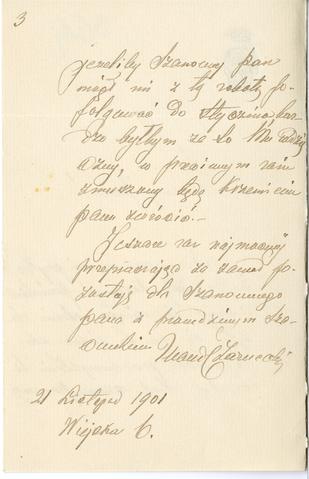 3
jeżeliby Szanowny pan
mógł mi z tą robotą po
folgować do stycznia, bar
dzo byłbym za to Mu wdzię
czny, w przeciwnym razie
zmuszony będę
panu zwrócić.-
Jeszcze raz najmocniej
przepraszając za zawód po
zostaję dla Szanownego
pana z prawdziwym sza
cunkiem
21 Listopad 1901
Wiejska 6.